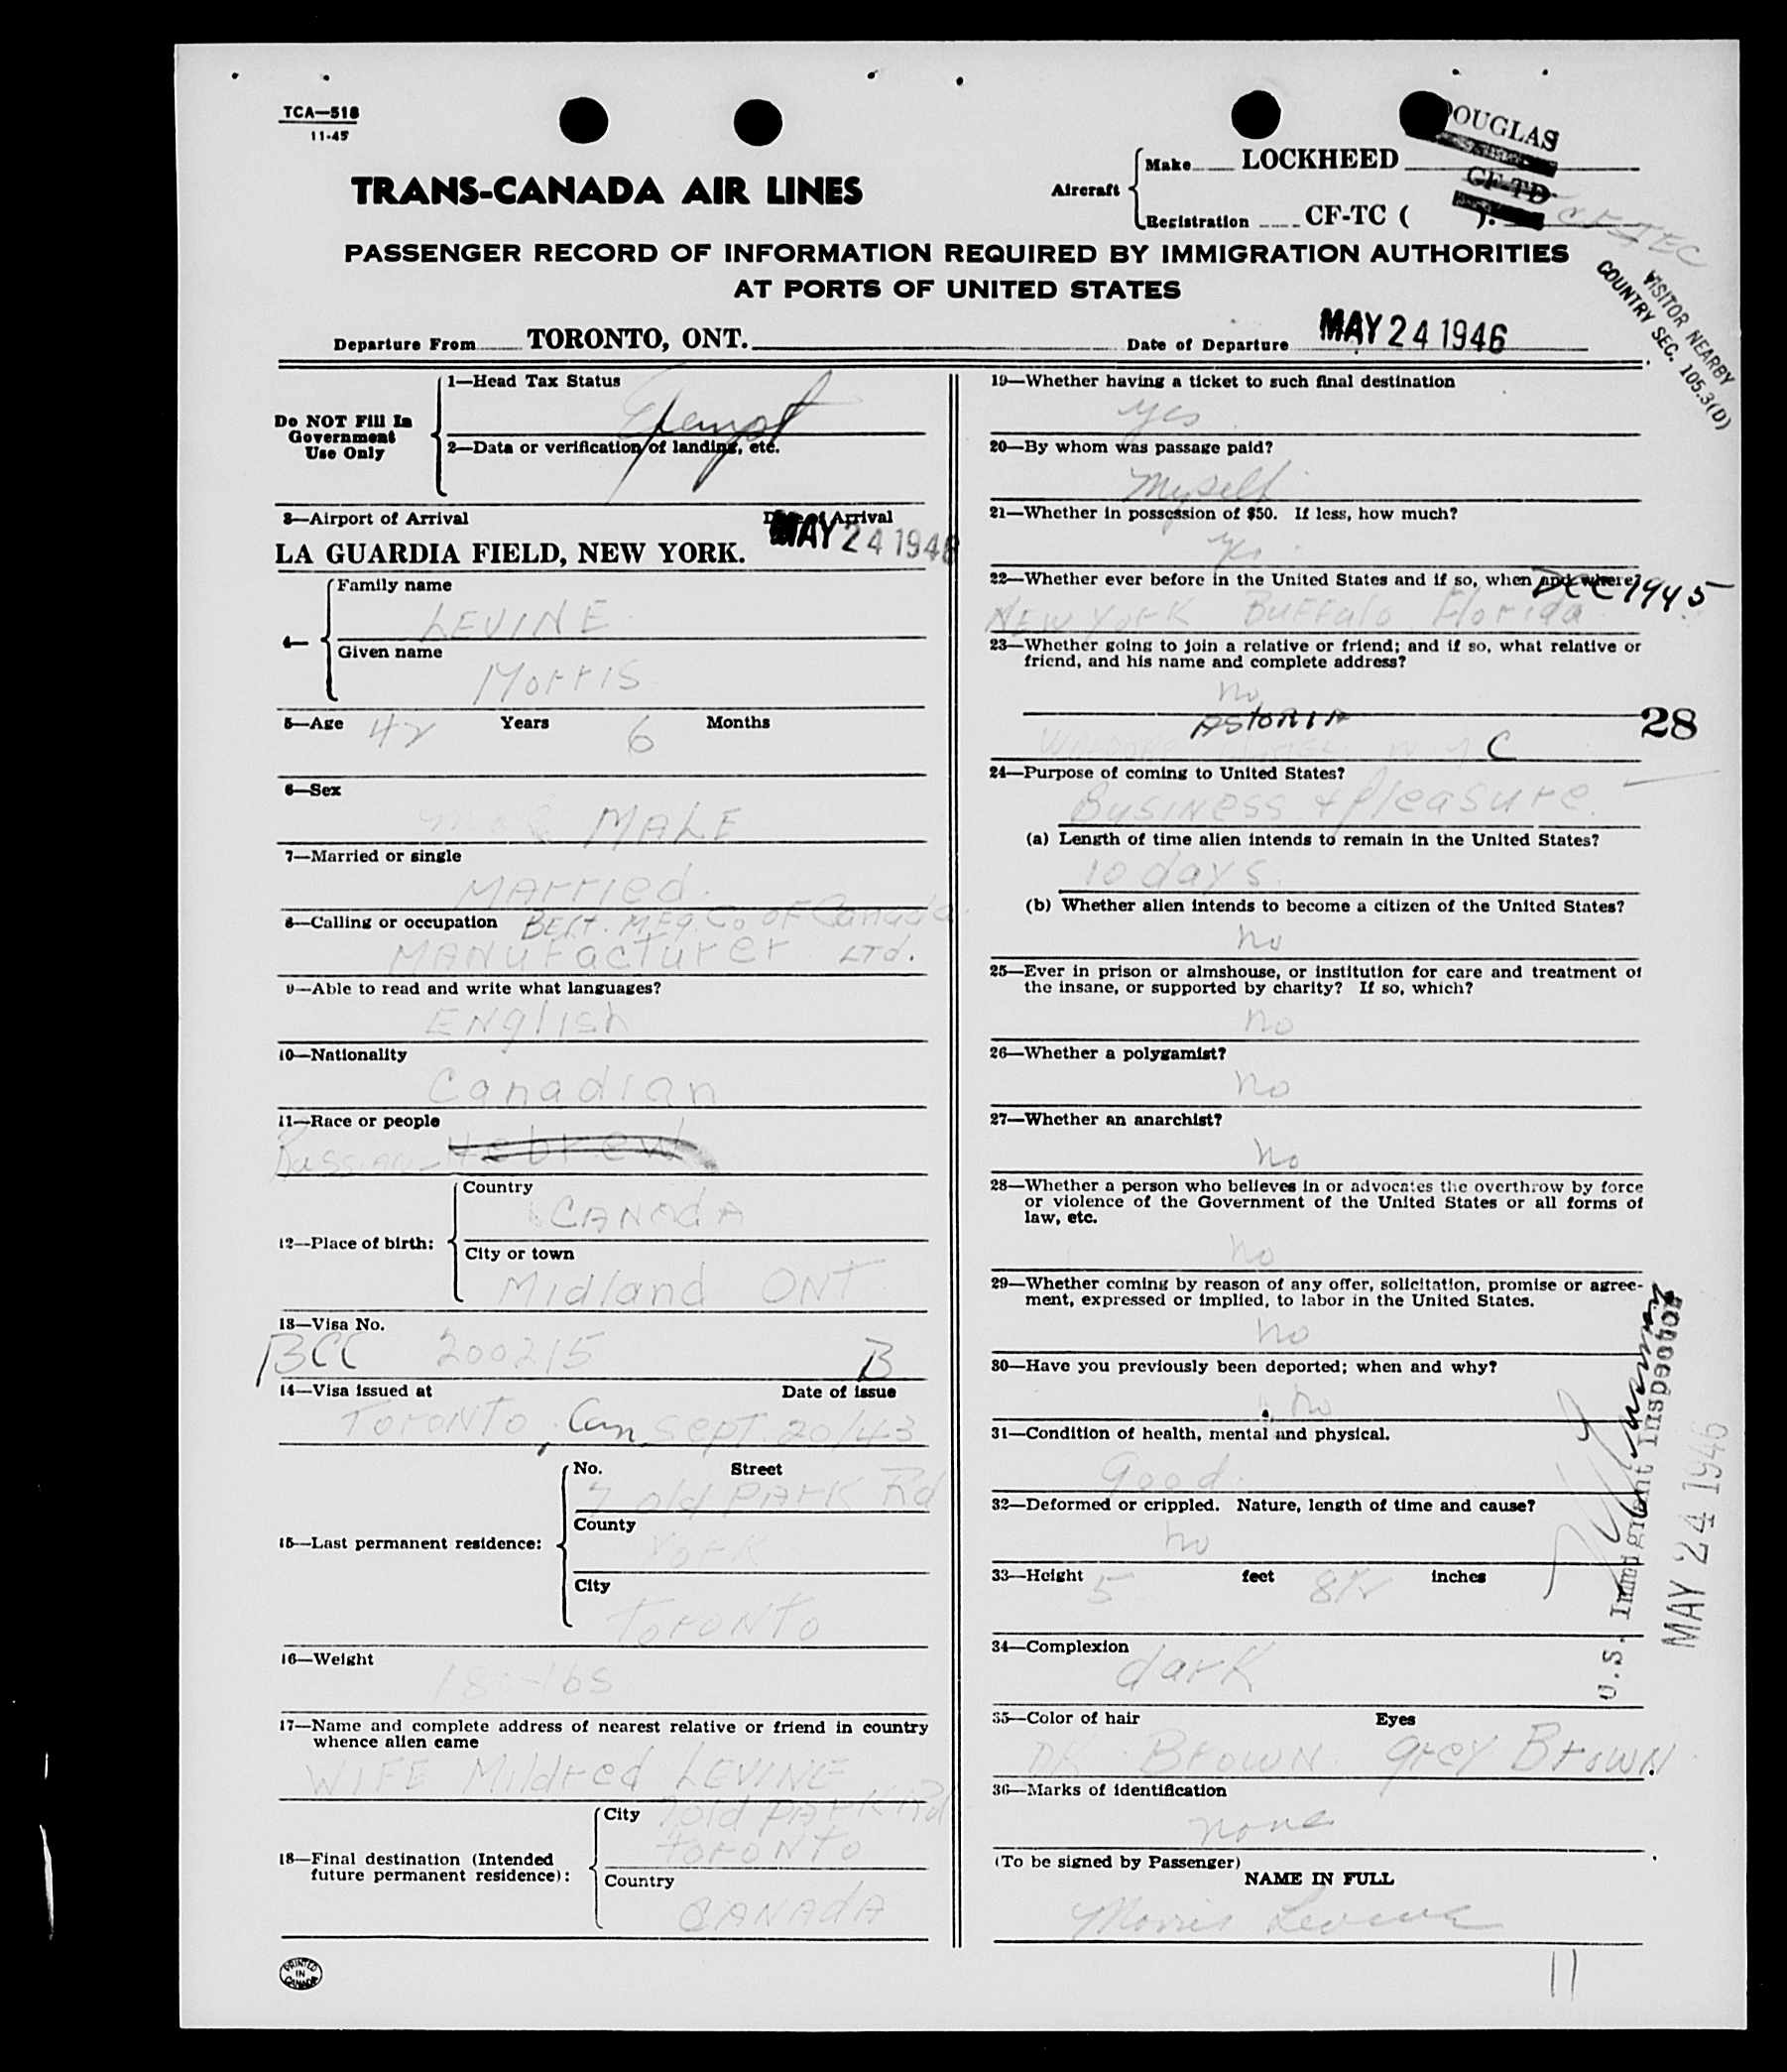 TCA—518
11-45
DOUGLAS
TRANS-CANADA AIR LINES
Aircraft
Make LOCKHEED
CF-TD
Registration CF-TC ( ). CF-TEC
PASSENGER RECORD OF INFORMATION REQUIRED BY IMMIGRATION AUTHORITIES
AT PORTS OF UNITED STATES
VISITOR NEARBY
COUNTRY SEC. 105.3(D)
Departure From TORONTO, ONT. Date of Departure MAY 24 1946
Do NOT Fill In
Government
Use Only
1—Head Tax Status
Exempt
2—Data or verification of landing, etc.
3—Airport of Arrival Date of Arrival
LA GUARDIA FIELD, NEW YORK. MAY 24 1946
4—
Family name
LEVINE
Given name
Morris
5—Age 42 Years 6 Months
6—Sex
MALE
7—Married or single
MArried.
8—Calling or occupation Belt. MFg. Co OF Canada
MANuFacturer LTd.
9—Able to read and write what languages?
ENglish
10—Nationality
Canadian
11—Race or people
Russian Hebrew
12—Place of birth:
Country
CANAdA
City or town
Midland ONT
13—Visa No.
BCC 200215 B
14—Visa issued at Date of issue
TorONTO, Can Sept. 20/43
15—Last permanent residence:
No. Street
7 old PArK Rd
County
YorK
City
TorONTo
16—Weight
lbs
17—Name and complete address of nearest relative or friend in country
whence alien came
WIFE Mildred LEVINE
18—Final destination (Intended
future permanent residence):
City 7 old PArK Rd
torONTo
Country
CANAdA
PRINTED
IN
CANADA
19—Whether having a ticket to such final destination
yes
20—By whom was passage paid?
Myself
21—Whether in possession of $50. If less, how much?
yes
22—Whether ever before in the United States and if so, when and where? DEC 1945
NEW YorK Buffalo Florida
23—Whether going to join a relative or friend; and if so, what relative or
friend, and his name and complete address?
no
ASTORIA
28
N Y C
24—Purpose of coming to United States?
Business + pleasure.
(a) Length of time alien intends to remain in the United States?
10 days
(b) Whether alien intends to become a citizen of the United States?
no
25—Ever in prison or almshouse, or institution for care and treatment of
the insane, or supported by charity? If so, which?
no
26—Whether a polygamist?
no
27—Whether an anarchist?
no
28—Whether a person who believes in or advocates the overthrow by force
or violence of the Government of the United States or all forms of
law, etc.
no
29—Whether coming by reason of any offer, solicitation, promise or agree-
ment, expressed or implied, to labor in the United States.
no
30—Have you previously been deported; when and why?
no
31—Condition of health, mental and physical.
Good.
32—Deformed or crippled. Nature, length of time and cause?
no
33—Height 5 feet 8½ inches
34—Complexion
dark
35—Color of hair Eyes
DK. BrowN grey BrowN
36—Marks of identification
none
(To be signed by Passenger)
NAME IN FULL
Morris Levine
11
U.S. Immigrant Inspector
MAY 24 1946